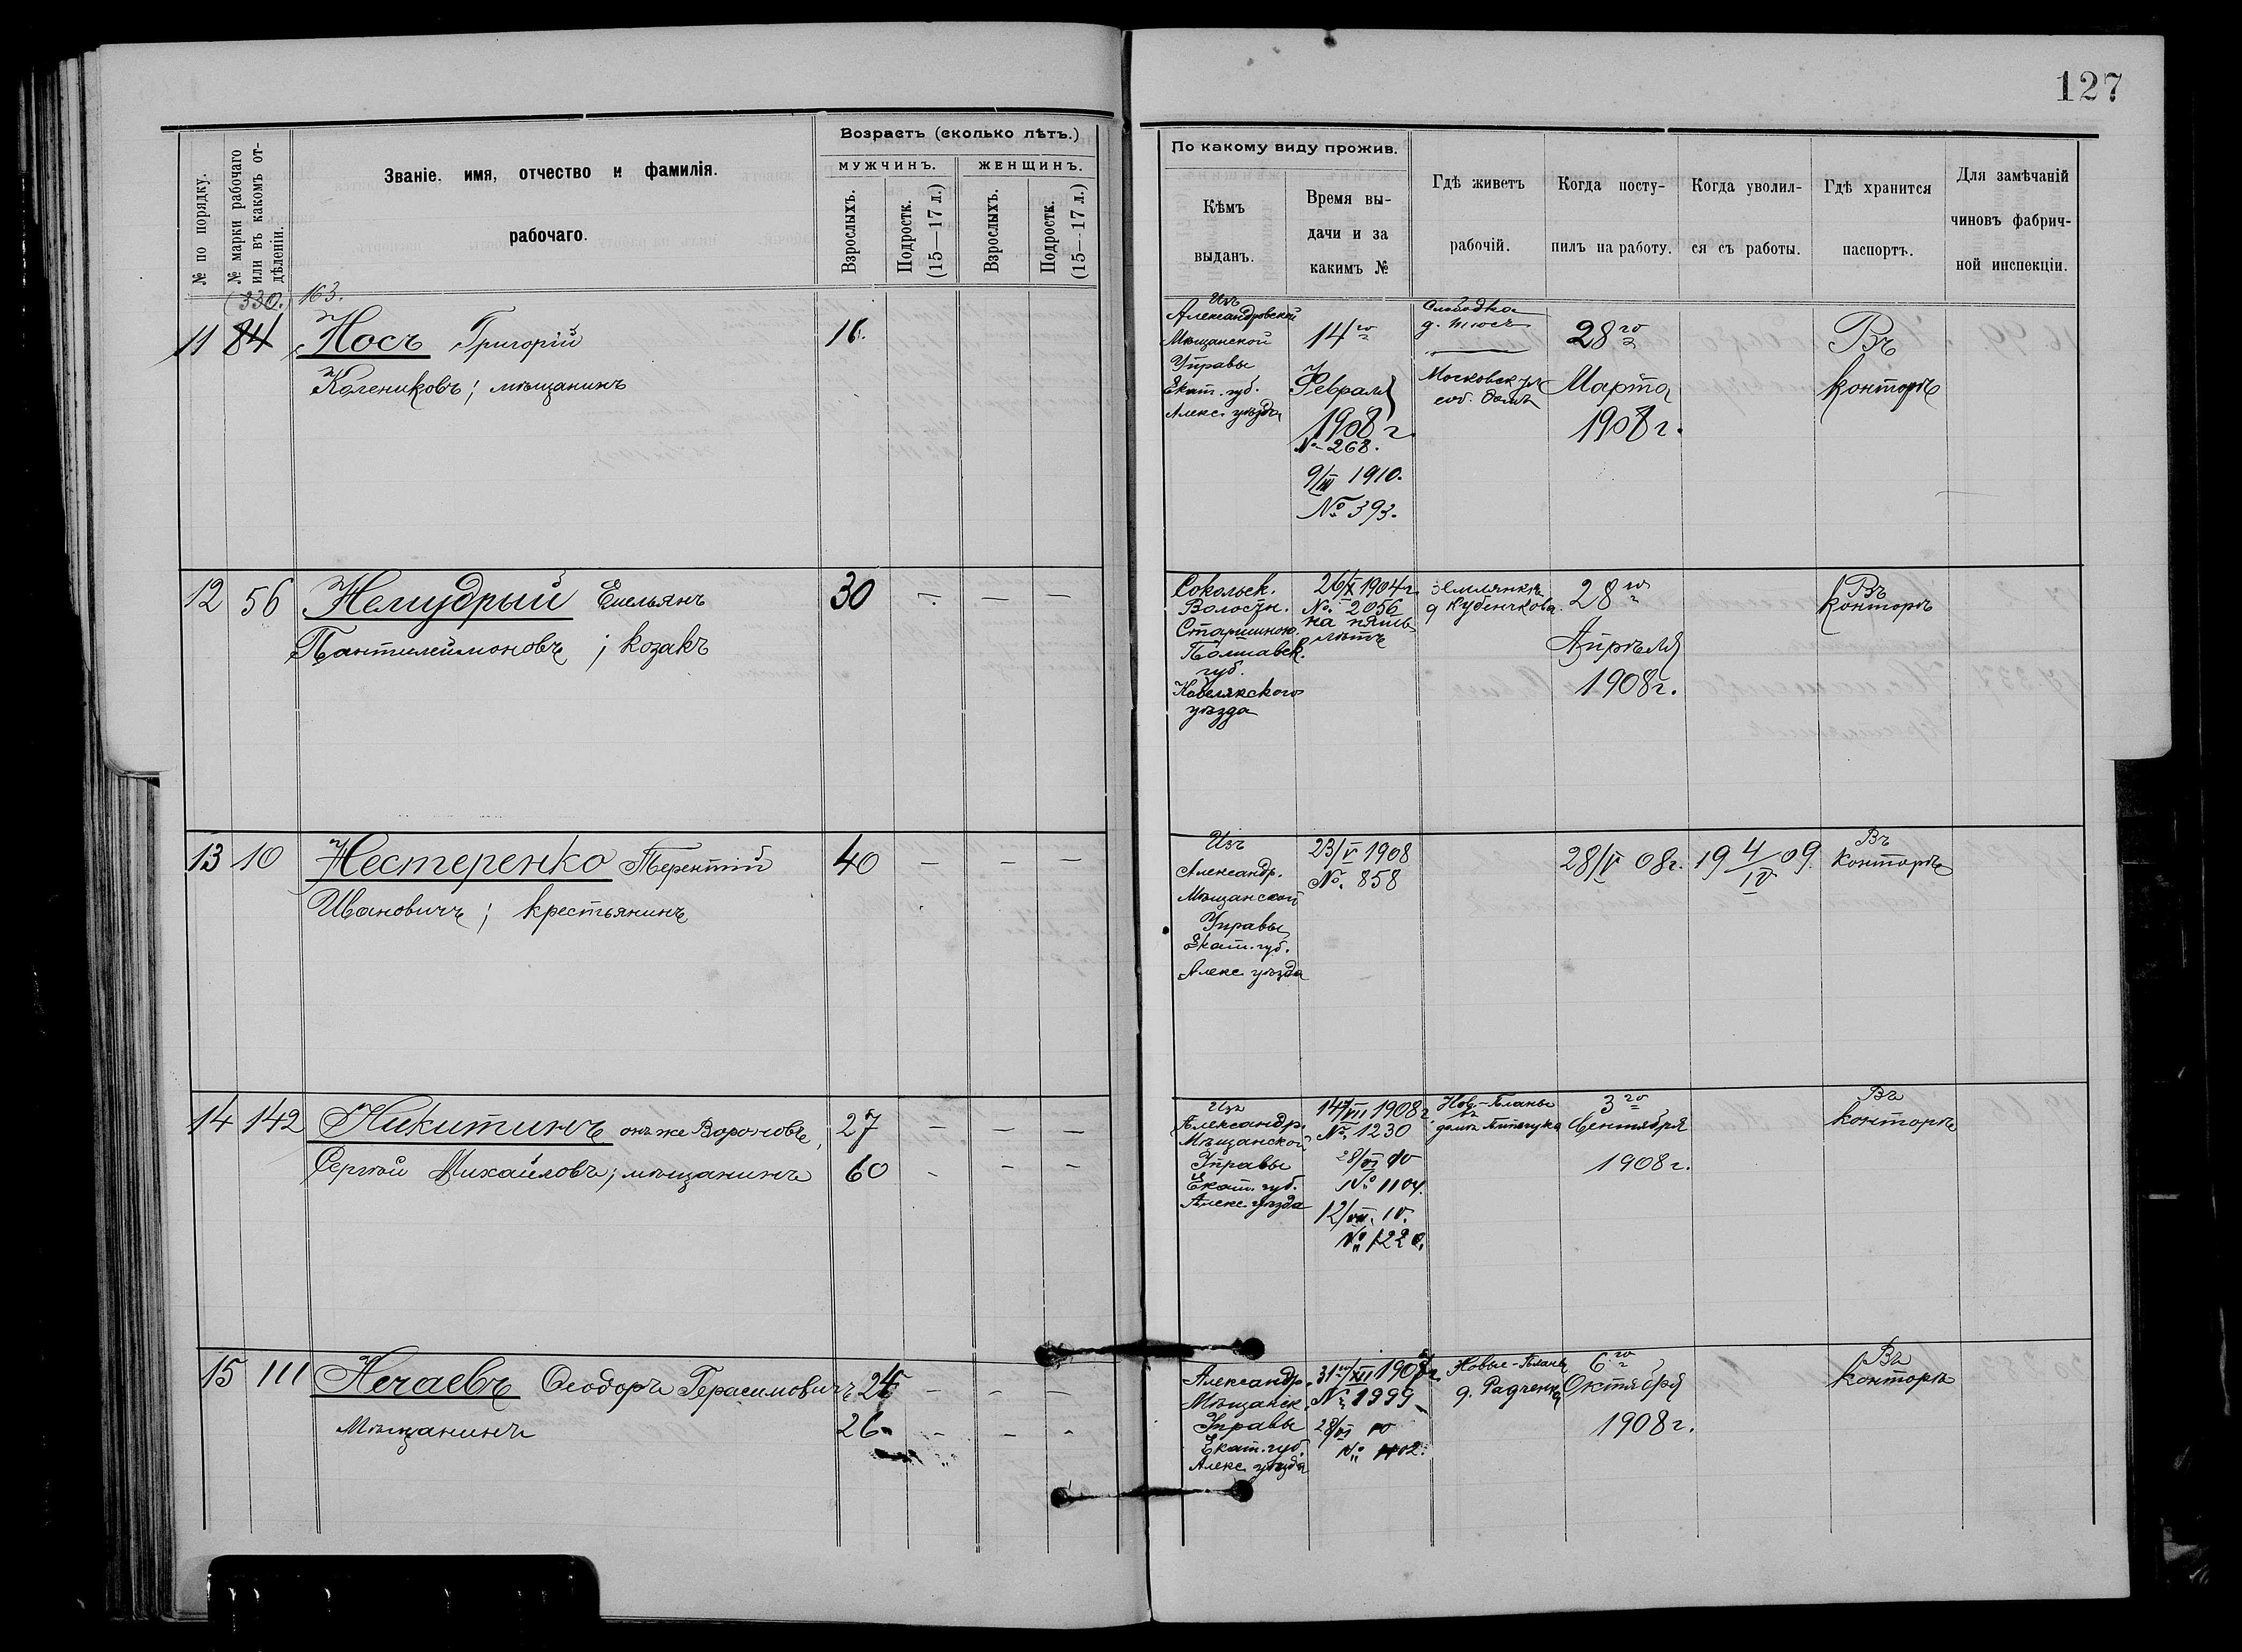 127
№ по порядку.
№ марки рабочаго или въ какомъ отдѣленіи.
Званіе, имя, отчество и фамилія.
рабочаго.
Возрастъ (сколько лѣтъ.)
МУЖЧИНЪ.
ЖЕНЩИНЪ.
Взрослыхъ.
Подростк.
(15—17 л.)
Взрослыхъ.
Подростк.
(15—17 л.)
По какому виду прожив.
Кѣмъ
выданъ.
Время вы-
дачи и за
какимъ №
Гдѣ живетъ
рабочій.
Когда посту-
пилъ на работу.
Когда уволил-
ся съ работы.
Гдѣ хранится
паспортъ.
Для замѣчаній
чиновъ фабрич-
ной инспекціи.
330. 163.
11 84 Носъ Григорій 16.
Колениковъ; мѣщанинъ
Изъ
Александровской
Мѣщанской
Управы
Екат. губ.
Алекс. уѣзда
14го
Февраля
1908 г.
№ 268.
9/III 1910.
№ 393.
Слободка
д. Носъ
Московск. ул.
соб. домъ
28го
Марта
1908 г.
Въ
конторѣ
12 56 Немудрый Емельянъ 30 — — —
Пантилеймоновъ; козакъ
Сокольск.
Волостн.
Старшиною.
Полтавск.
губ.
Кобелякскаго
уѣзда
26/X 1904 г.
№ 2056
на пять
лѣтъ
Землянки
28го
Апрѣля
1908 г.
Въ
конторѣ
13 10 Нестеренко Терентій 40 — — —
Ивановичъ; крестьянинъ
Изъ
Александр.
Мѣщанской
Управы
Екат. губ.
Алекс. уѣзда
23/V 1908
№ 858
28/V 08 г.
19 4/IV 09.
Въ
конторѣ
14 142 Никитинъ онъ же Вороновъ, 27 — — —
Сергѣй Михайловъ; мѣщанинъ 60 - - -
Изъ
Александр.
Мѣщанской
Управы
Екат. губ.
Алекс. уѣзда
14/VII 1908 г.
№ 1230
28/VI 10
№ 1104.
12/VII. 10.
№ 1220.
Нов.-Планы
3го
Сентября
1908 г.
Въ
конторѣ
15 111 Нечаевъ Ѳеодоръ Герасимовичъ 24 — — —
Мѣщанинъ 26. - - -
Александр.
Мѣщанск.
Управы
Екат. губ.
Алекс. уѣзда
31го/XII 1908 г.
№ 1999
28/VI 10
№ 1102.
Новые-Планы
д. Радченка
6го
Октября
1908 г.
Въ
конторѣ